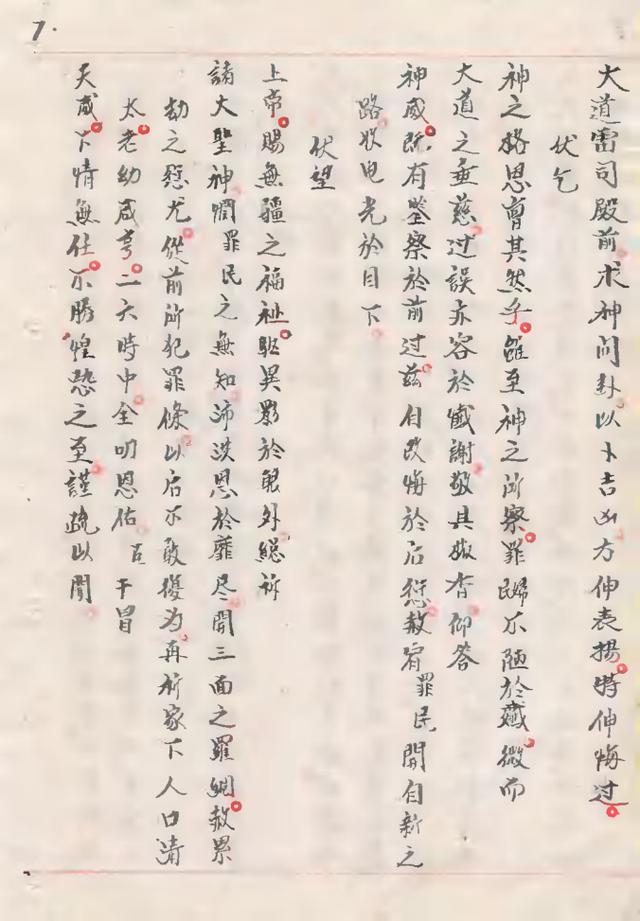 7.
大道雷司殿前求神问卦以卜吉凶方伸表揚特伸悔过
伏乞
神之格思曾其然乎雖至神之所察罪歸不随於纎微而
大道之垂慈过誤亦容於懺謝敬具散香仰答
神威既有鉴察於前过兹自改悔於后愆赦宥罪民開自新之
路收电光於目下
伏望
上帝賜無疆之福祉駈異影於魍外緦訴
諸大聖神憫罪民之無知沛浃恩於靡尽開三面之羅網赦累
劫之愆尤從前所犯罪條以后不敢復为再祈家下人口清
太老幼咸亨二六時中全叨恩佑臣干冒
天威卜情無任不勝惶恐之至謹疏以聞